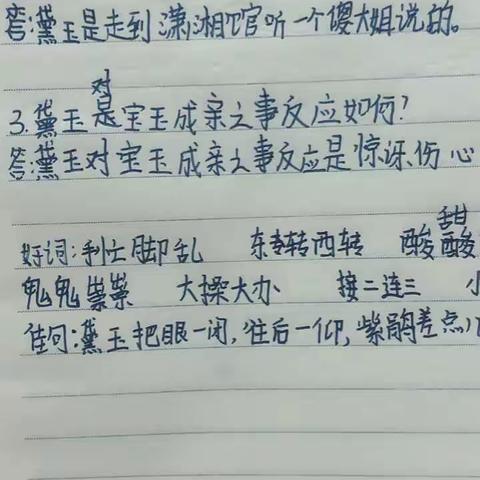 答:黛玉是走到潇湘馆听一个傻大姐说的。
对
3.黛玉是宝玉成亲之事反应如何?
答:黛玉对宝玉成亲之事反应是惊讶、伤心
甜
好词:手忙脚乱 东转西转 酸酸
鬼鬼祟祟 大操大办 接二连三 小
佳句:黛玉把眼一闭,往后一仰,紫鹃差点儿